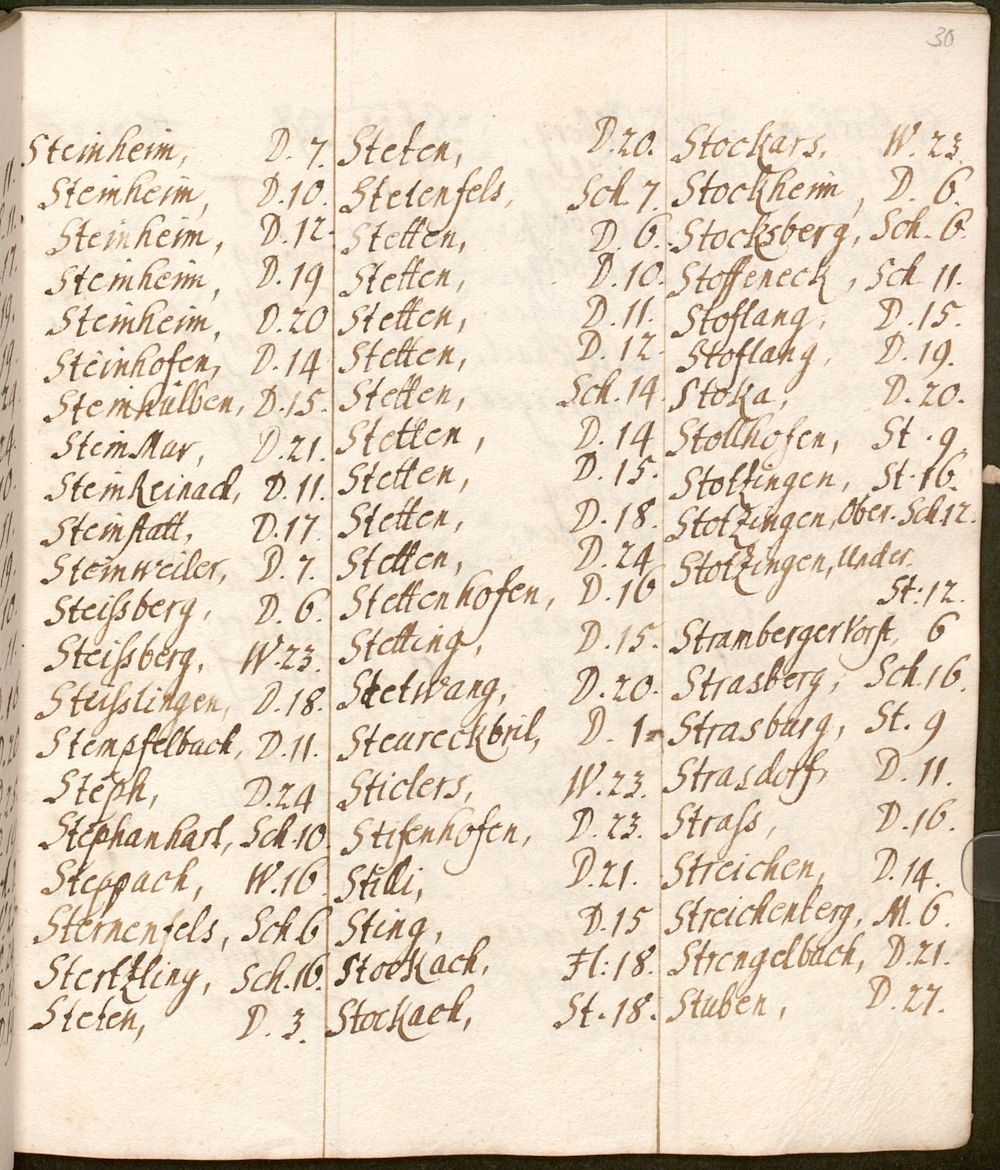 30
Steinheim, D. 7.
Steinheim, D. 10.
Steinheim, D. 12.
Steinheim, D. 19
Steinheim, D. 20
Steinhofen, D. 14
Steinhülben, D. 15.
SteinMar, D. 21.
Steinreinach, D. 11.
Steinstatt, D. 17.
Steinweiler, D. 7.
Steissberg, D. 6.
Steissberg, W. 23.
Steisslingen, D. 18.
Stempfelbach, D. 11.
Steph, D. 24
Stephanhart, Sch. 10.
Steppach, W. 16
Sternenfels, Sch. 6
Stertzling, Sch. 16.
Steten, D. 3.
Steten, D. 20.
Stetenfels, Sch. 7.
Stetten, D. 6.
Stetten, D. 10.
Stetten, D. 11.
Stetten, D. 12.
Stetten, Sch. 14.
Stetten, D. 14
Stetten, D. 15.
Stetten, D. 18.
Stetten, D. 24
Stettenhofen, D. 16
Stetting, D. 15.
Stetwang, D. 20.
Steureckbril, D. 1.
Stiders, W. 23.
Stifenhofen, D. 23.
Stilli, D. 21.
Sting, D. 15
Stockach, Fl: 18.
Stockach, St. 18.
Stockars, W. 23.
Stockheim, D. 6.
Stocksberg, Sch. 6.
Stoffeneck, Sch. 11.
Stoflang, D. 15.
Stoflang, D. 19.
Stoka, D. 20.
Stollhofen, St. 9
Stoltzingen, St. 16.
Stotzingen, Ober. Sch. 12.
Stotzingen, Under.
St: 12.
Stramberger Vorst, 6
Strasberg, Sch. 16.
Strasburg, St. 9
Strasdorf, D. 11.
Strass, D. 16.
Streichen, D. 14.
Streichenberg, M. 6.
Strengelbach, D. 21.
Stuben, D. 27.